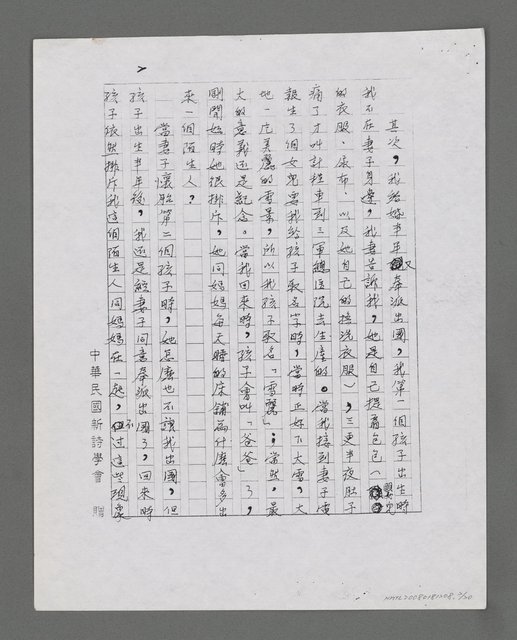 其次，我給婚半年又奉派出國，我第一個孩子出生時
我不在妻子身邊，我妻告訴我，她是自己提着包包（嬰兒
的衣服、尿布，以及她自己的換洗衣服），三更半夜肚子
痛了才叫計程車到三軍總醫院去生產的。當我接到妻子電
報生了個女兒要我給孩子取名字時，當時正好下大雪，大
地一片美麗的雪景，所以我孩子取名「雪麗」；當然，最
大的意義還是紀念。當我回來時，孩子會叫「爸爸」了，
剛開始時她很排斥，她問媽媽每天睡的床鋪為什麼會多出
來一個陌生人？
當妻子懷胎第二個孩子時，她怎麼也不讓我出國，但
孩子出生半年後，我還是經妻子同意奉派出國了，回來時
孩子依然排斥我這個陌生人同媽媽在一起，不過這些現象
中華民國新詩學會 贈
2
NMTL20080181208. 2/20